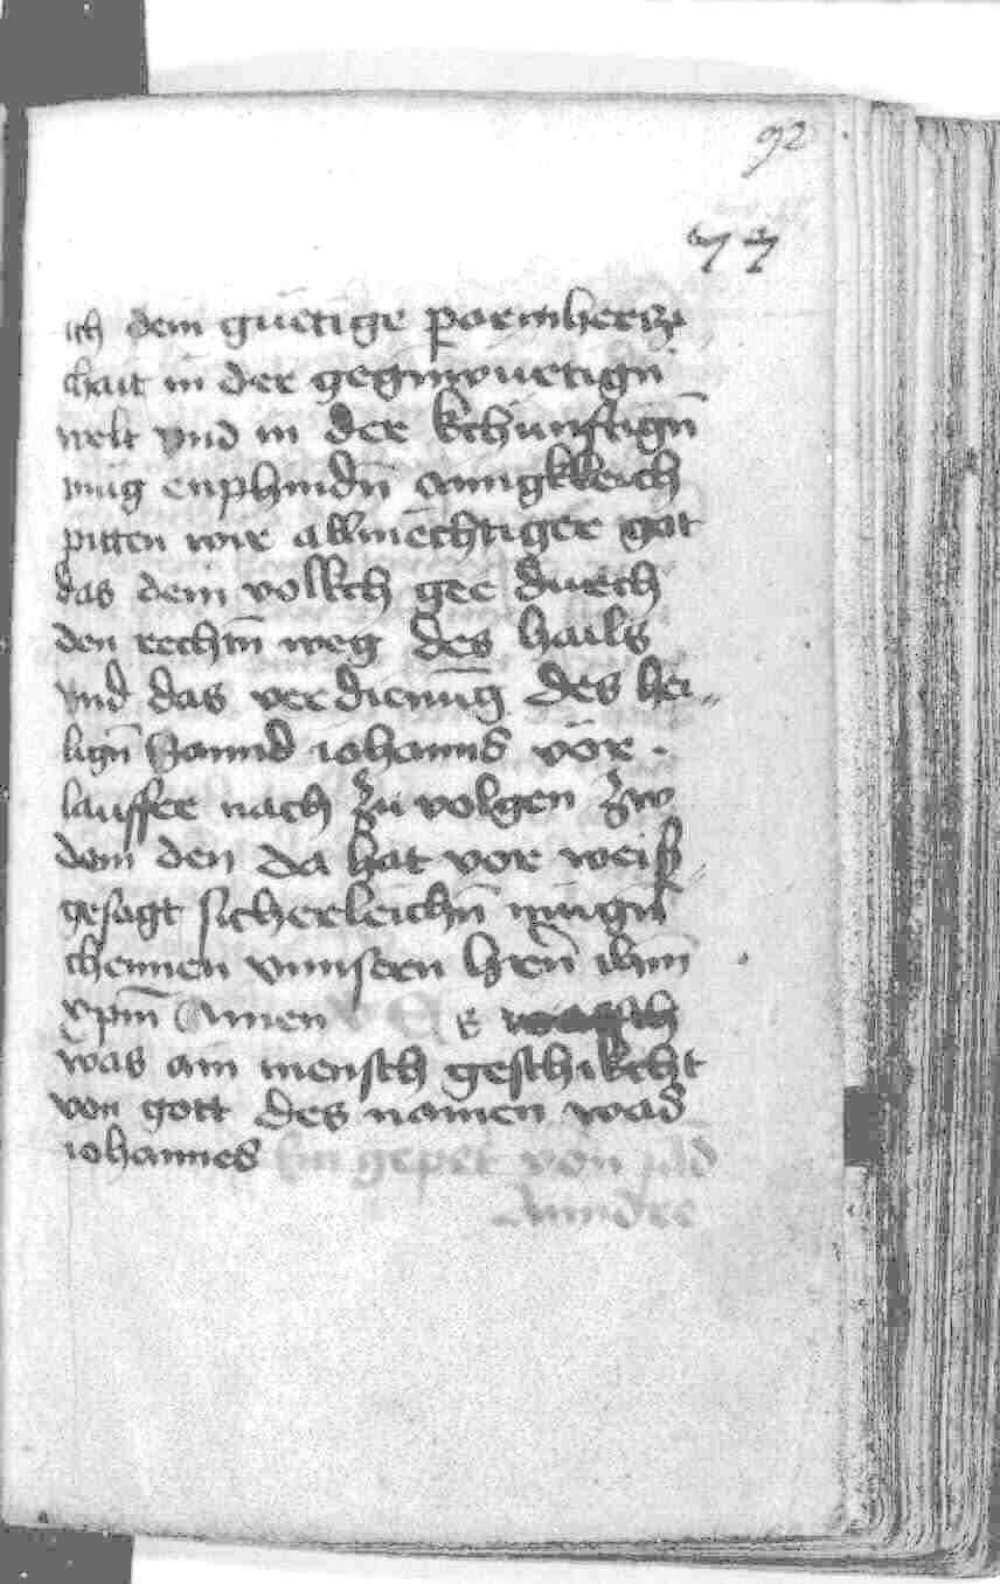 92
77
ich dein guetige parmhercz
chait in der gegnwurtign̄
welt vnd in der kchunftign̄
mug enphindn̄ Ainigkleich
pitten wir allmechtiger got
das dein volkch gee durch
den rechtn̄ weg des hails
vnd das verdienūg des hei„
lign̄ Sannd iohanns vor
lauffer nach zu volgen zw
dem den da hat vor weiß
gesagt sicherleichn̄ mugn̄
chemen vnnsern hrēn ihm̄
xpm̄ Amen
was ain mensch geschikcht
von gott des namen was
iohannes Ein gepet von sād
Anndre